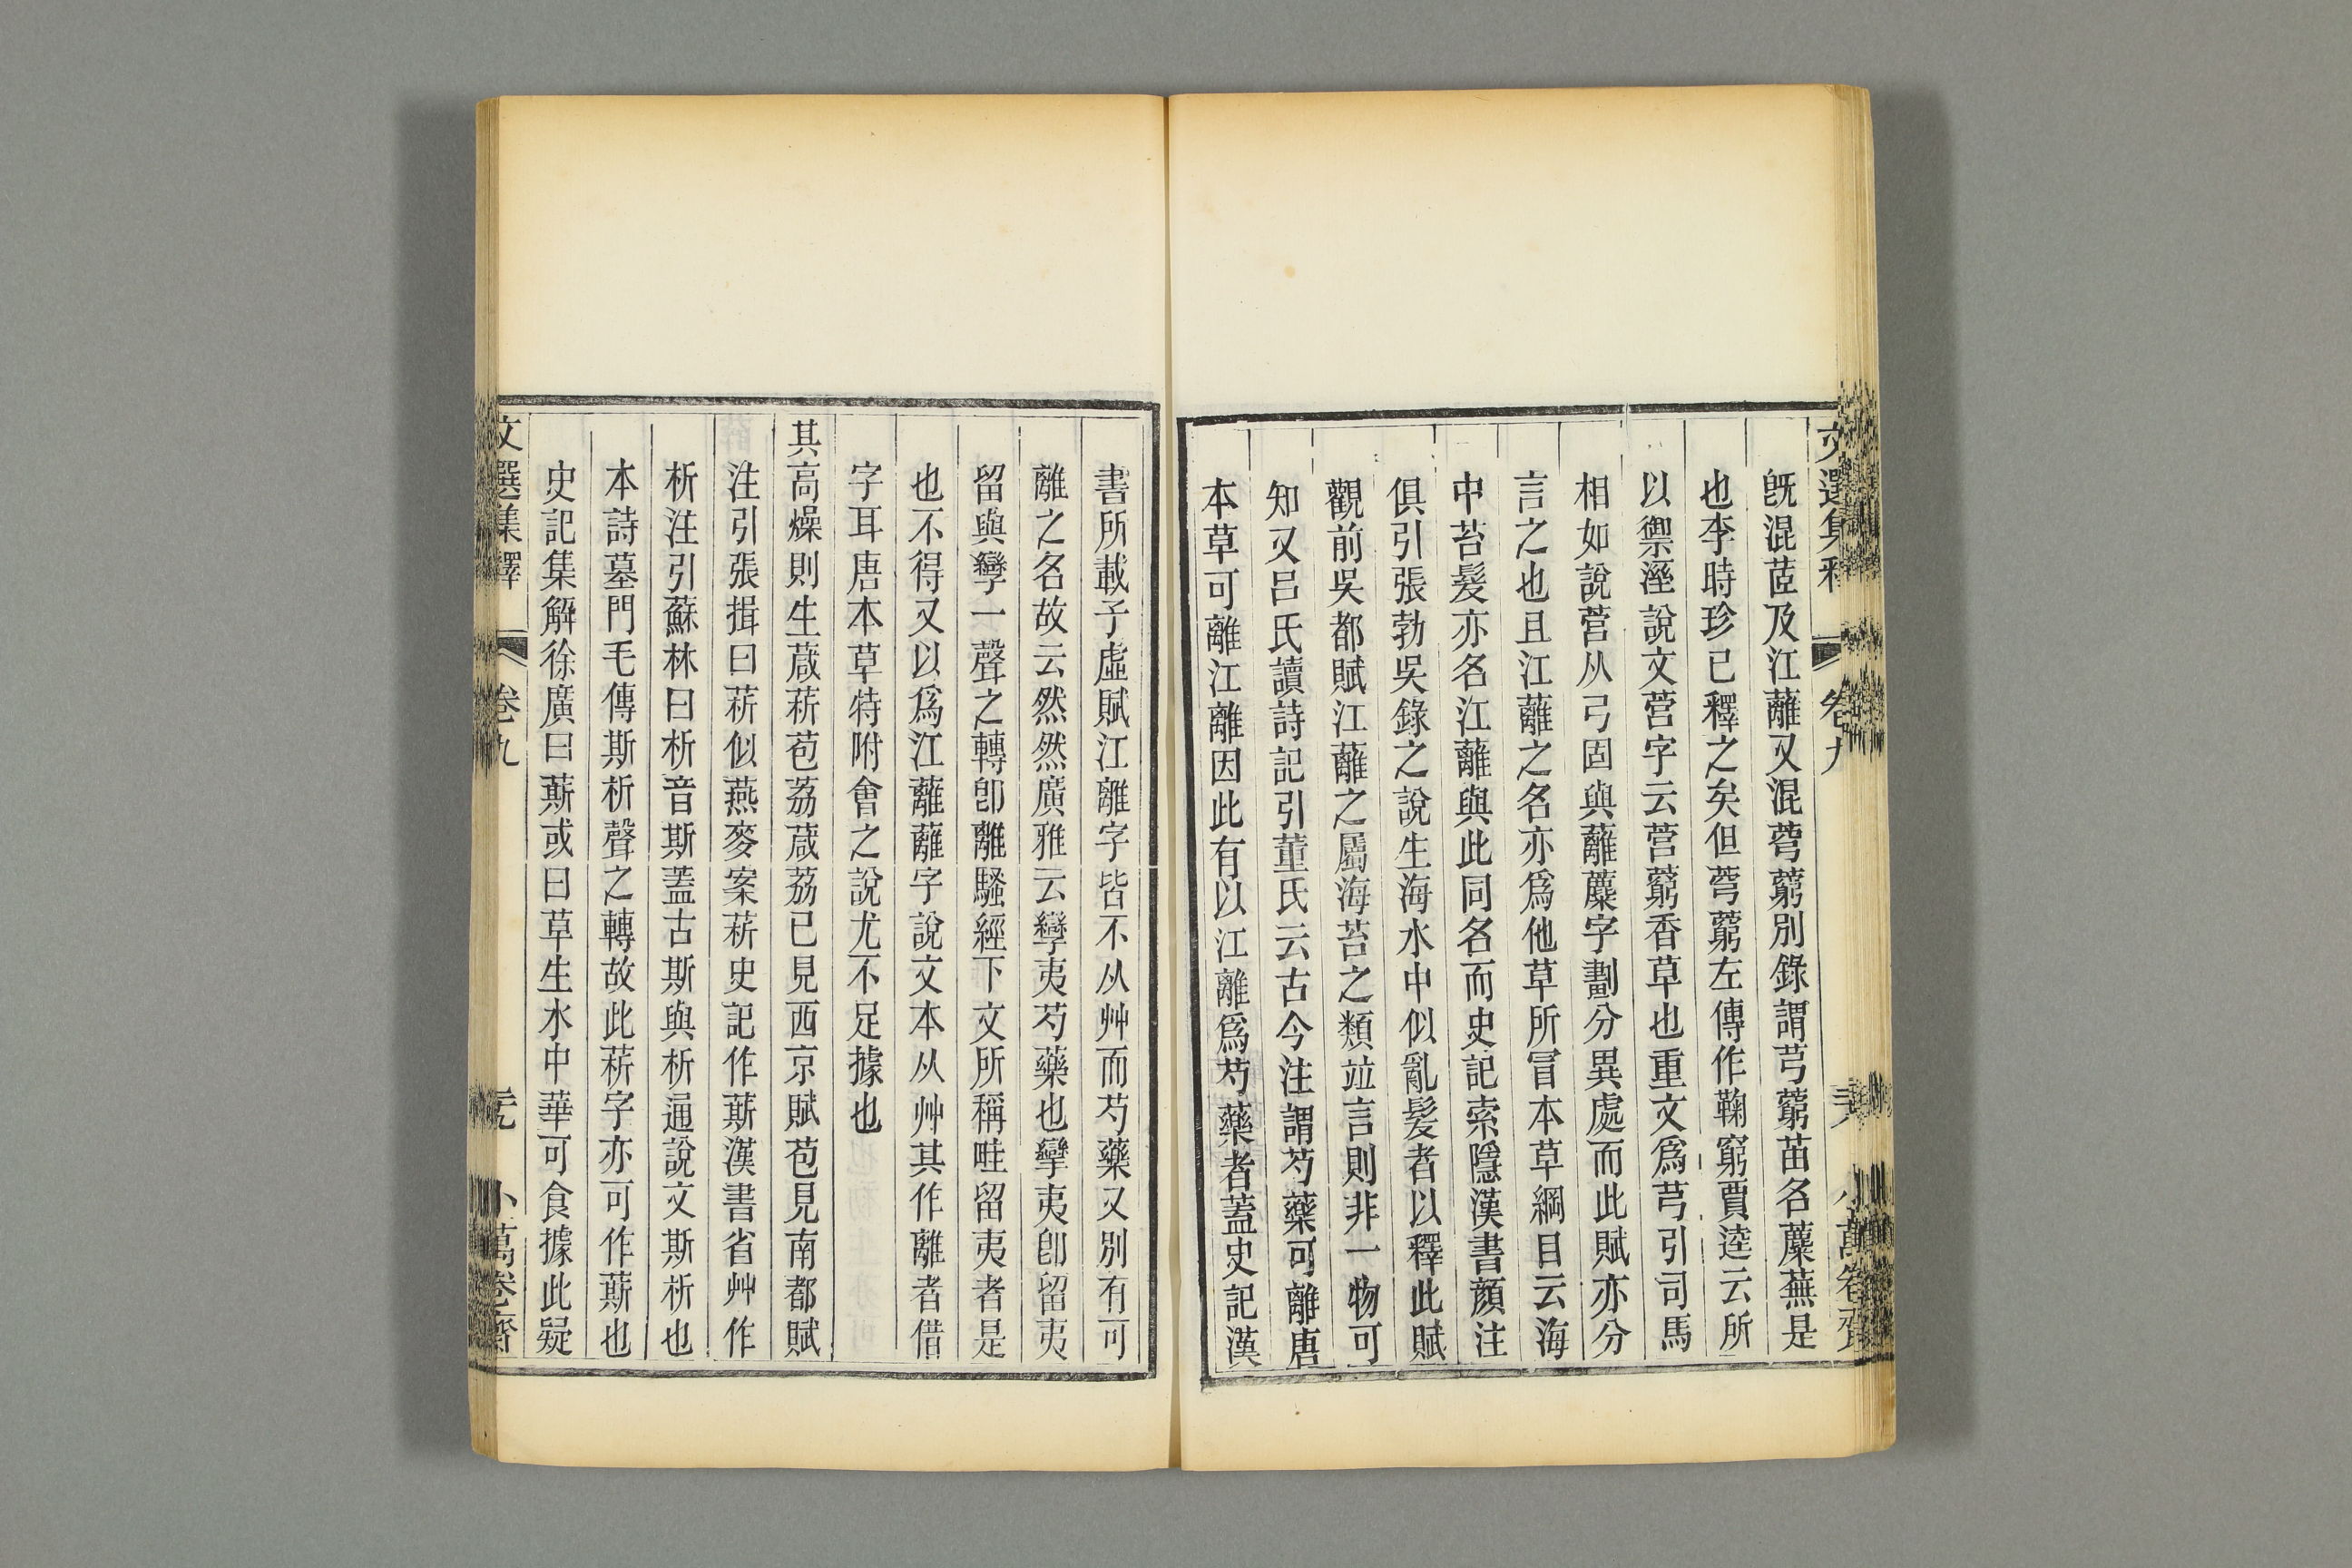 文選集釋 卷九 小萬卷齋
旣混茝及江蘺又混䓖藭別錄謂芎藭苗名蘪蕪是
也李時珍已釋之矣但芎藭左傳作鞠窮賈逵云所
以禦溼說文营字云营藭香草也重文爲芎引司馬
相如說营从弓固與蘺蘪字劃分異處而此賦亦分
言之也且江蘺之名亦爲他草所冒本草綱目云海
中苔髮亦名江蘺與此同名而史記索隱漢書顏注
俱引張勃吳錄之說生海水中似亂髮者以釋此賦
觀前吳都賦江蘺之屬海苔之類竝言則非一物可
知又呂氏讀詩記引董氏云古今注謂芍藥可離唐
本草可離江離因此有以江離爲芍藥者蓋史記漢
書所載子虛賦江離字皆不从艸而芍藥又別有可
離之名故云然然廣雅云孿夷芍藥也攣夷卽留夷
留與孿一聲之轉卽離騷經下文所稱畦留夷者是
也不得又以爲江蘺蘺字說文本从艸其作離者借
字耳唐本草特附會之說尤不足據也
其高燥則生葴菥苞荔葴荔已見西京賦苞見南都賦
注引張揖曰菥似燕麥案菥史記作蘄漢書省艸作
析注引蘇林曰析音斯蓋古斯與析通說文斯析也
本詩墓門毛傳斯析聲之轉故此菥字亦可作蘄也
史記集解徐廣曰蘄或曰草生水中華可食據此疑
文選集釋 卷九 小萬卷齋